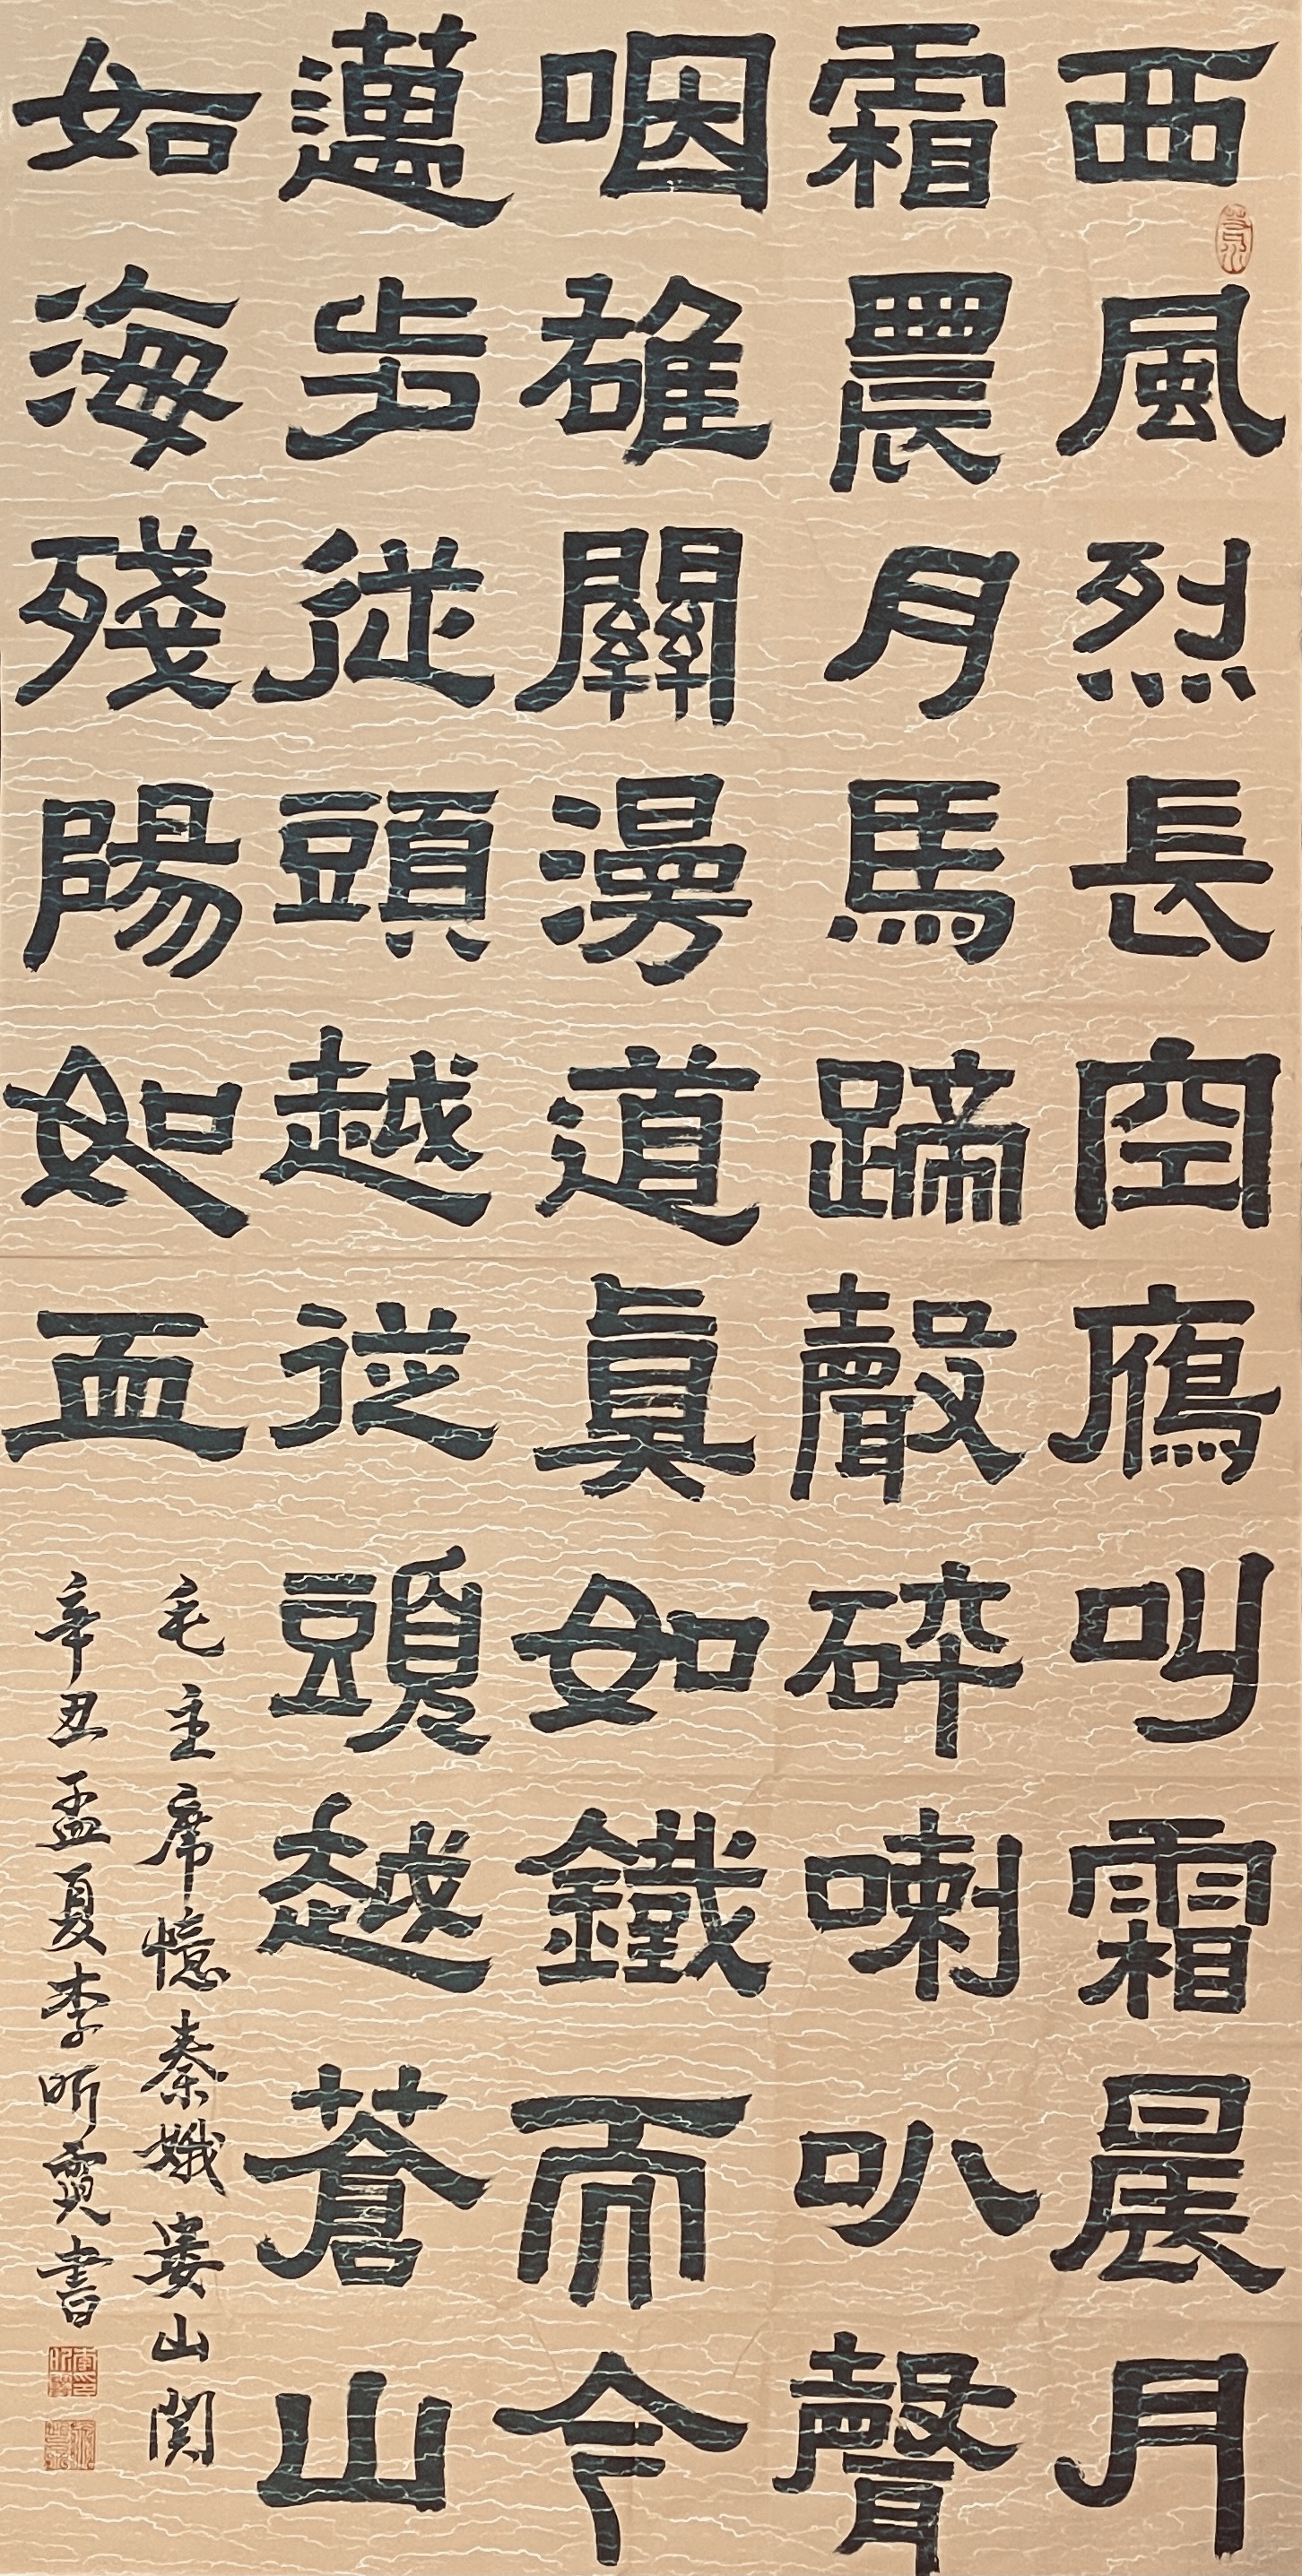 西風烈長空鴈叫霜晨月
霜晨月馬蹄聲碎喇叭聲
咽雄關漫道真如鐵而今
邁步從頭越從頭越蒼山
如海殘陽如血
毛主席憶秦娥婁山関
辛丑孟夏李昕霓書